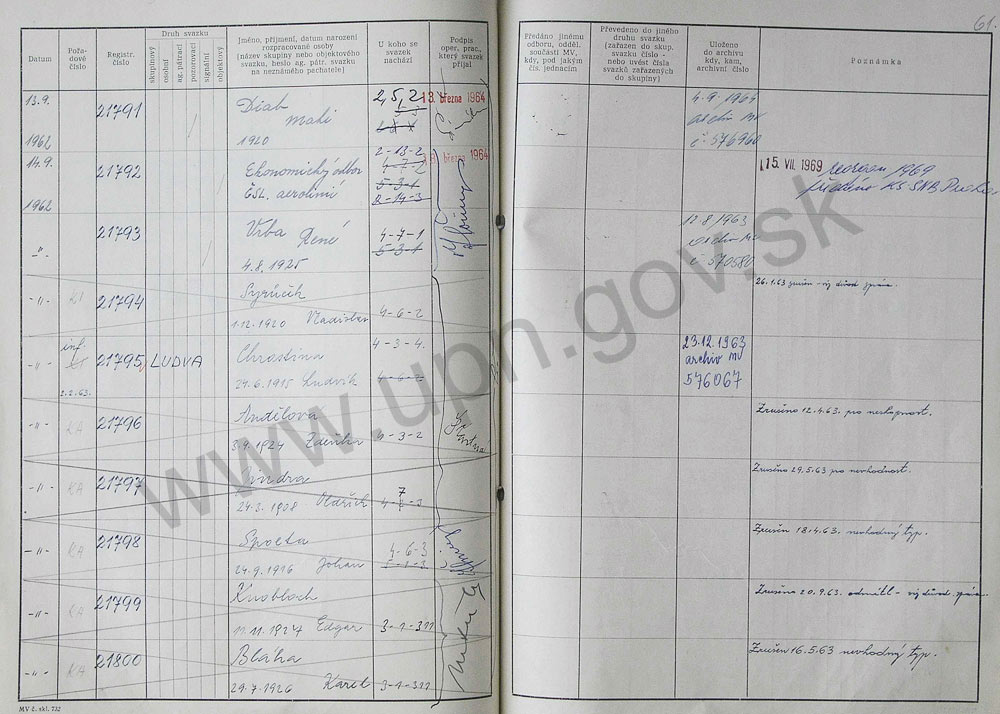 61.
Datum
Pořa-
dové
číslo
Registr.
číslo
Druh svazku
skupinový
osobní
ag. pátrací
pozorovací
signální
objektový
Jméno, příjmení, datum narození
rozpracované osoby
(název skupiny nebo objektového
svazku, heslo ag. pátr. svazku
na neznámého pachatele)
U koho se
svazek
nachází
Podpis
oper. prac.,
který svazek
přijal
Předáno jinému
odboru, odděl.
součásti MV,
kdy, pod jakým
čís. jednacím
Převedeno do jiného
druhu svazku
(zařazen do skup.
svazku číslo -
nebo uvést čísla
svazků zařazených
do skupiny)
Uloženo
do archivu
kdy, kam,
archivní číslo
Poznámka
13.9.
1962
21791
Diab
mali
1920
2,5,2
13. března 1964
4.9.1964
archiv MV
č. 576960
14.9.
1962
21792
Ekonomický odbor
ČSL. aerolinií
2-13-2
4-7-2
5-3-1
2-14-3
března 1964
15. VII. 1969
1969
předáno KS SNB Praha
-"-
21793
Vrba René
4.8.1925
4-7-1
5-3-1
12.8.1963
archiv MV
č. 570580
-"-
21794
Syrůčik
1.12.1920 Vladislav
4-6-2
26.1.63 zrušen - viz důvod zpráva.
-"-
inf.
2.2.63.
21795
LUDVA
Chrastina
24.6.1915 Ludvík
4-3-4.
4-6-2
23.12.1963
archiv MV
576067
-"-
KA
21796
Andělova
3.9.1924 Zdeňka
4-3-2
Zrušeno 12.4.63 pro neschopnost.
-"-
KA
21797
Jindra
24.2.1908 Oldřich
Zrušeno 29.5.63 pro nevhodnost.
-"-
KA
21798
Spocta
24.9.1916 Johan
4-6-3
Zrušen 18.4.63 nevhodný typ.
-"-
KA
21799
Knobloch
11.11.1927 Edgar
3-1-311
Zrušeno 20.9.63. odmítl - viz důvod zpráva
-"-
KA
21800
Bláha
29.7.1926 Karel
3-1-311
Zrušen 16.5.63 nevhodný typ.
MV č. skl. 732
www.upn.gov.sk